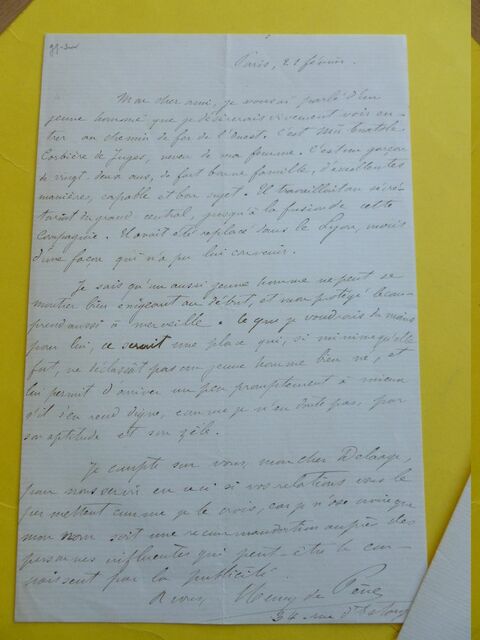 Paris, 21 février.
Mon cher ami, je vous ai parlé d'un
jeune homme que je désirerais vivement voir en-
trer au chemin de fer de l'ouest. C'est Mr Anatole
Corbière de Juges, neveu de ma femme. C'est un garçon
de vingt deux ans, de fort bonne famille, d'excellentes
manières, capable et bon sujet. Il travaillait au secré-
tariat du grand central, jusqu'à la fusion de cette
compagnie. Il avait été replacé dans le Lyon, mais
d'une façon qui n'a pu lui convenir.
Je sais qu'un aussi jeune homme ne peut se
montrer bien exigeant au début, et mon protégé le com-
prend aussi à merveille. Ce que je voudrais du moins
pour lui, ce serait une place qui, si minime qu'elle
fut, ne déclassât pas un jeune homme bien né, et
lui permit d'arriver un peu promptement à mieux
s'il s'en rend digne, comme je n'en doute pas, par
son aptitude et son zèle.
Je compte sur vous, mon cher Delaage,
pour nous servir en ceci si vos relations vous le
permettent comme je le crois, car je n'ose croire que
mon nom soit une recommandation auprès des
personnes influentes qui peut-être le con-
naissent par la publicité.
à vous, Henry de Pène
34 rue